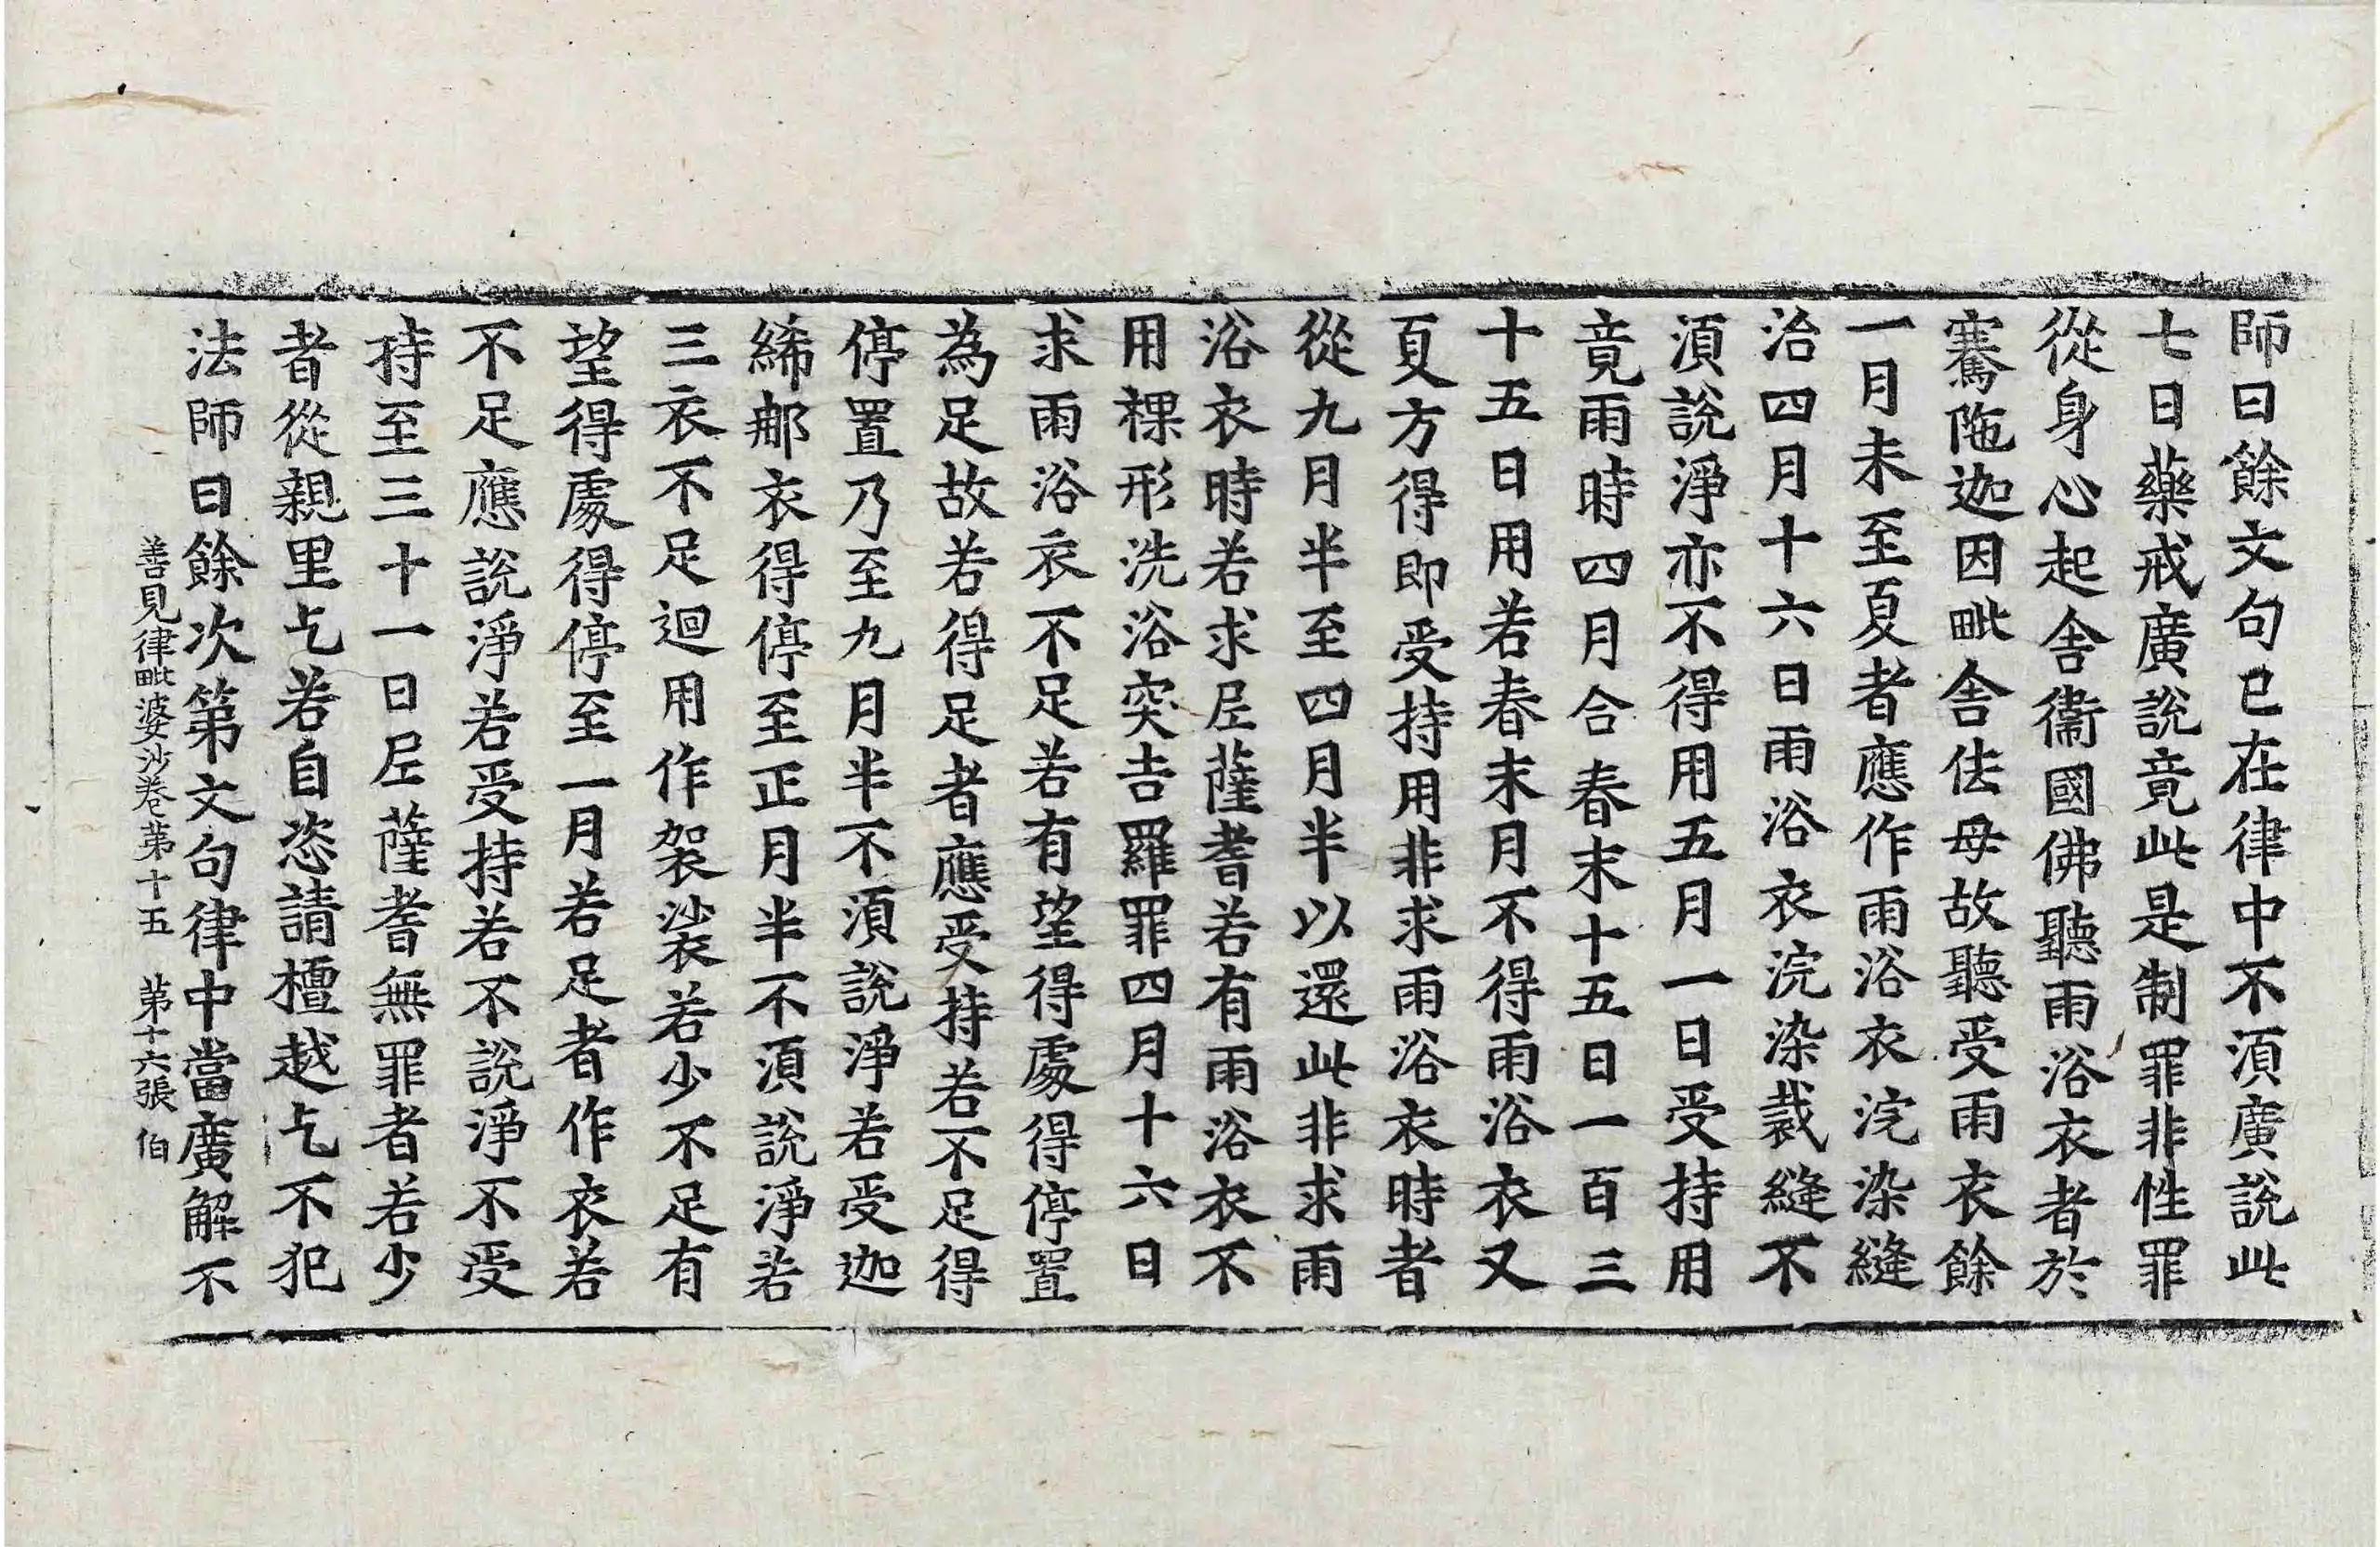 師曰餘文句已在律中不湏廣說此
七日藥戒廣說竟此是制罪非性罪
從身心起舍衞國佛聽雨浴衣者於
騫陁迦因毗舍佉母故聽受雨衣餘
一月未至夏者應作雨浴衣浣染縫
治四月十六日雨浴衣浣染裁縫不
湏說淨亦不得用五月一日受持用
竟雨時四月合春末十五日一百三
十五日用若春末月不得雨浴衣又
夏方得即受持用非求雨浴衣時者
從九月半至四月半以還此非求雨
浴衣時若求尼薩耆若有雨浴衣不
用裸形洗浴突吉羅罪四月十六日
求雨浴衣不足若有望得處得停置
為足故若得足者應受持若不足得
停置乃至九月半不湏說淨若受迦
絺那衣得停至正月半不湏說淨若
三衣不足迴用作袈裟若少不足有
望得處得停至一月若足者作衣若
不足應說淨若受持若不說淨不受
持至三十一日尼薩耆無罪者若少
者從親里乞若自恣請檀越乞不犯
法師曰餘次第文句律中當廣解不
善見律毗婆沙卷第十五 第十六張 伯